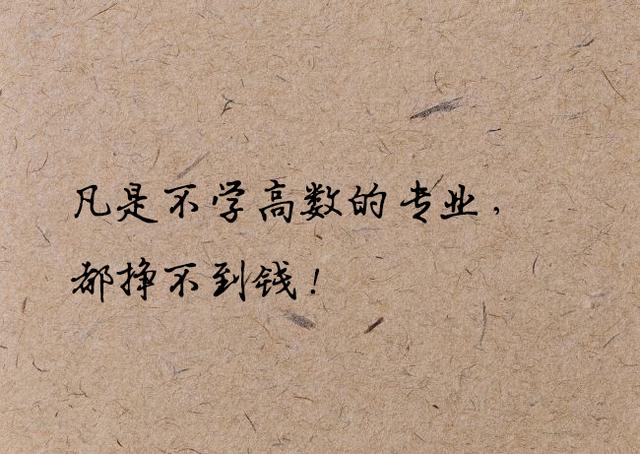 凡是不学高数的专业，
都挣不到钱！